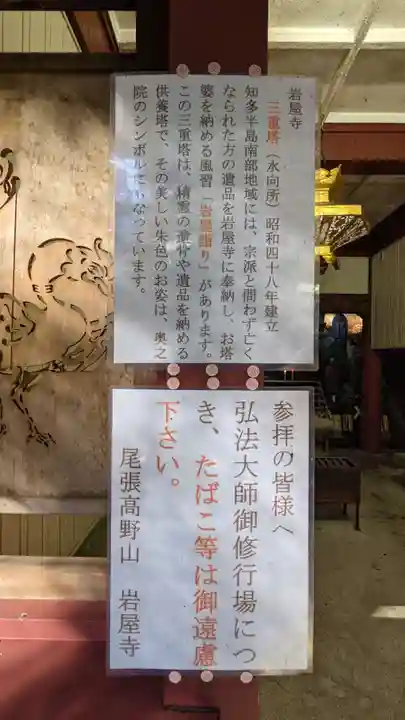 岩屋寺
三重塔（水向所）昭和四十八年建立
知多半島南部地域には、宗派と問わず亡く
なられた方の遺品を岩屋寺に奉納し、お塔
婆を納める風習「岩屋詣り」があります。
この三重塔は、精霊の遺りや遺品を納める
供養塔で、その美しい朱色のお姿は、奥之
院のシンボルになっています。
参拝の皆様へ
弘法大師御修行場につ
き、たばこ等は御遠慮
下さい。
尾張高野山　岩屋寺